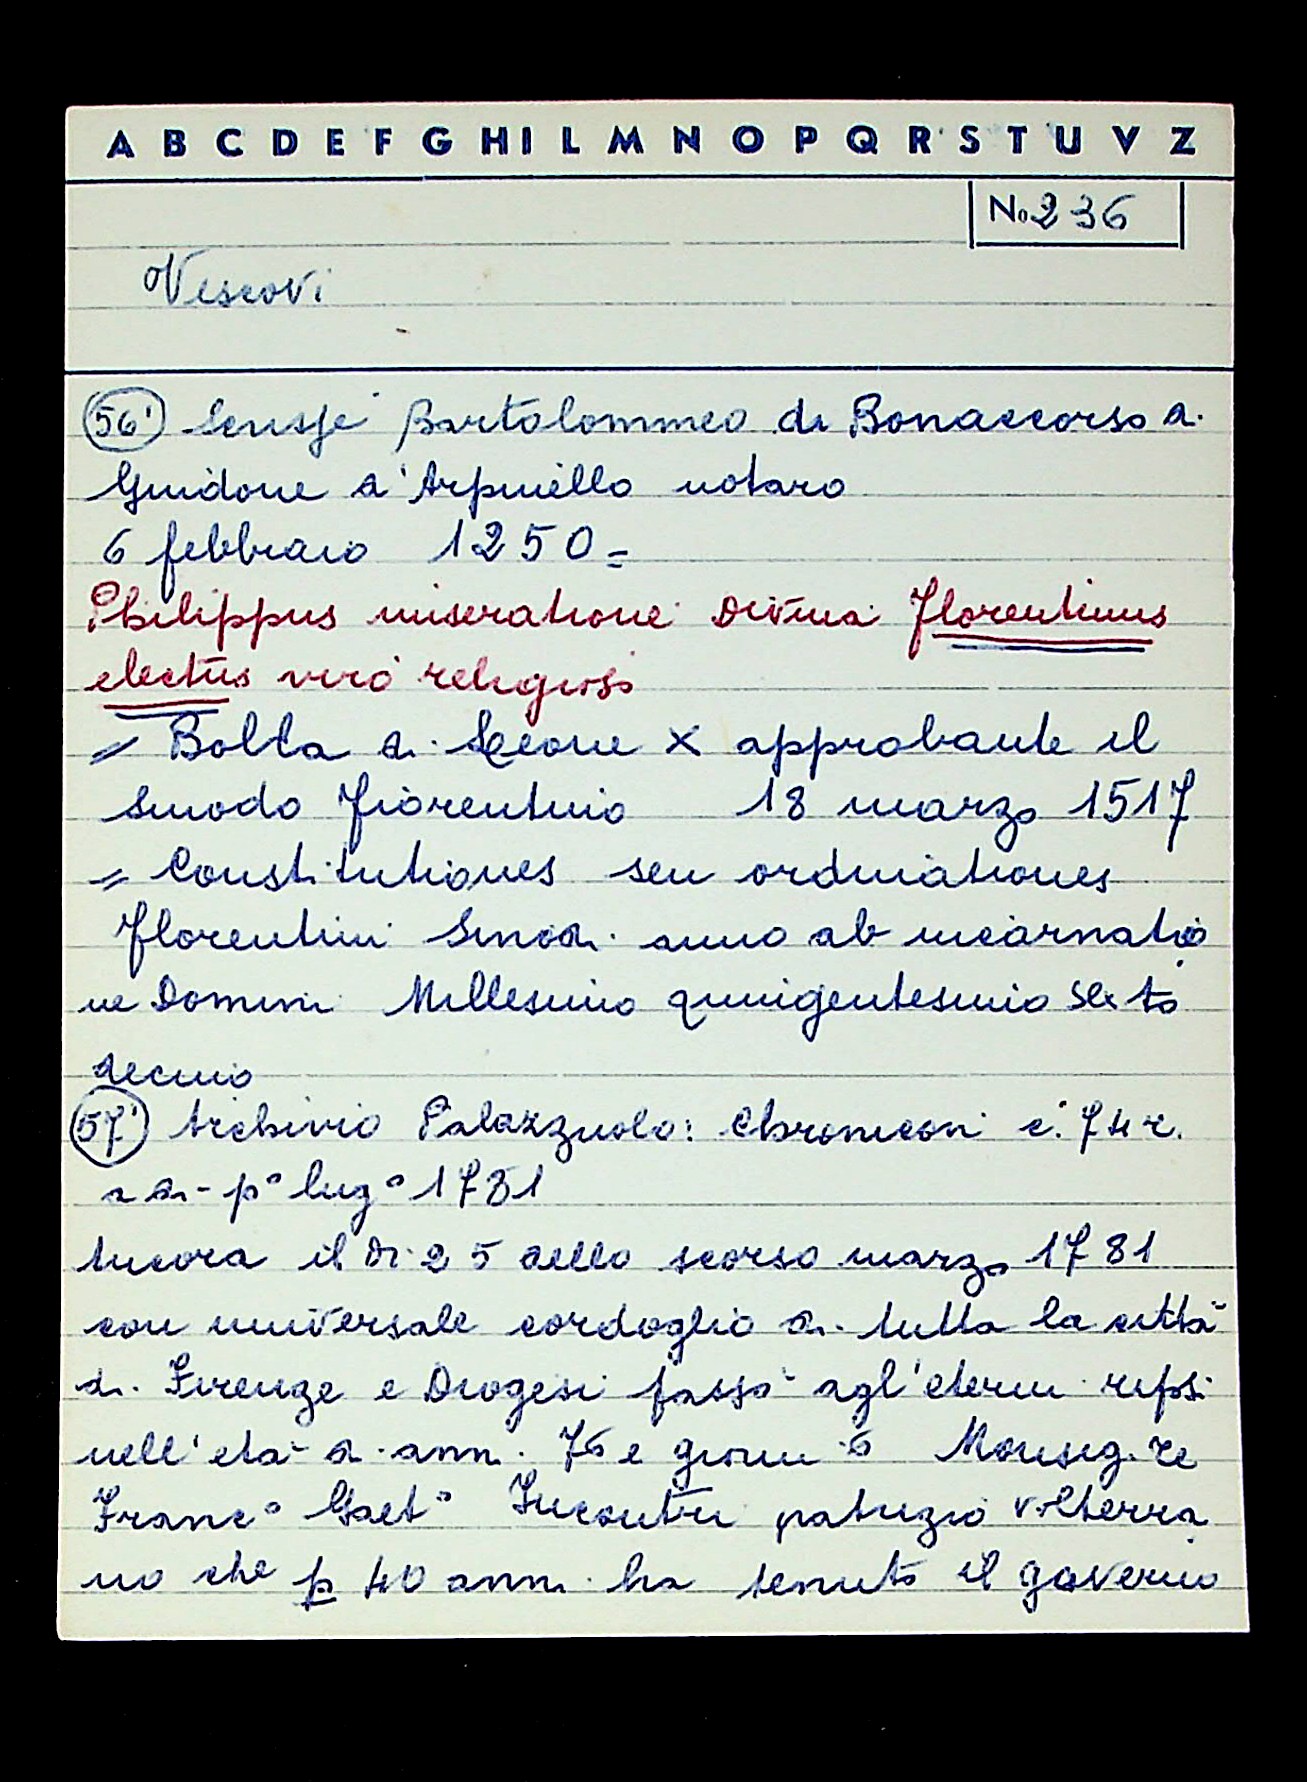 A B C D E F G H I L M N O P Q R S T U V Z
No 236
Vescovi
56' Scrisse Bartolommeo di Bonaccorso di
Guidone d'Arpinello notaro
6 febbraio 1250 =
Philippus miseratione divina florentinus
electus viro religioso
= Bolla di Leone X approbante il
sinodo fiorentino 18 marzo 1517
= Constitutiones seu ordinationes
florentini Sinodi anno ab incarnatio
ne Domini Millesimo quingentesimo sexto
decimo
57' Archivio Palazzuolo: Chronicon c. 74 r.
a di p° lug° 1781
Ancora il di 25 dello scorso marzo 1781
con universale cordoglio di tutta la città
di Firenze e Diogesi passò agl'eterni riposi
nell'età di anni 76 e giorni 6 Monsig.re
Franc° Gaet° Incontri patrizio volterra
no che p 40 anni ha tenuto il governo